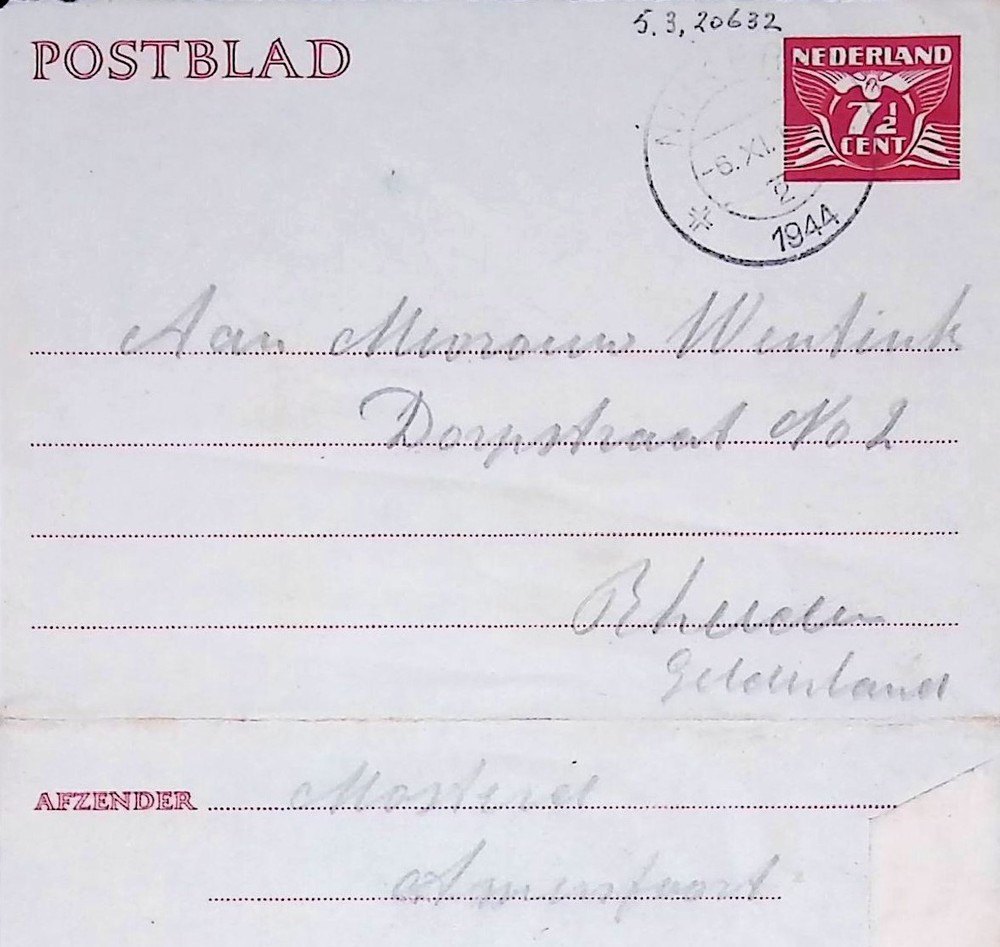 5.3, 20632
POSTBLAD
NEDERLAND
7½
CENT
-6.XI.
2
1944
Aan Mevrouw Wentink
Dorpstraat No 2
Rheden
Gelderland
AFZENDER Mosterd
Amersfoort